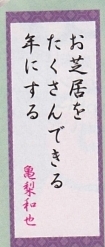 お芝居を
たくさんできる
年にする
亀梨和也